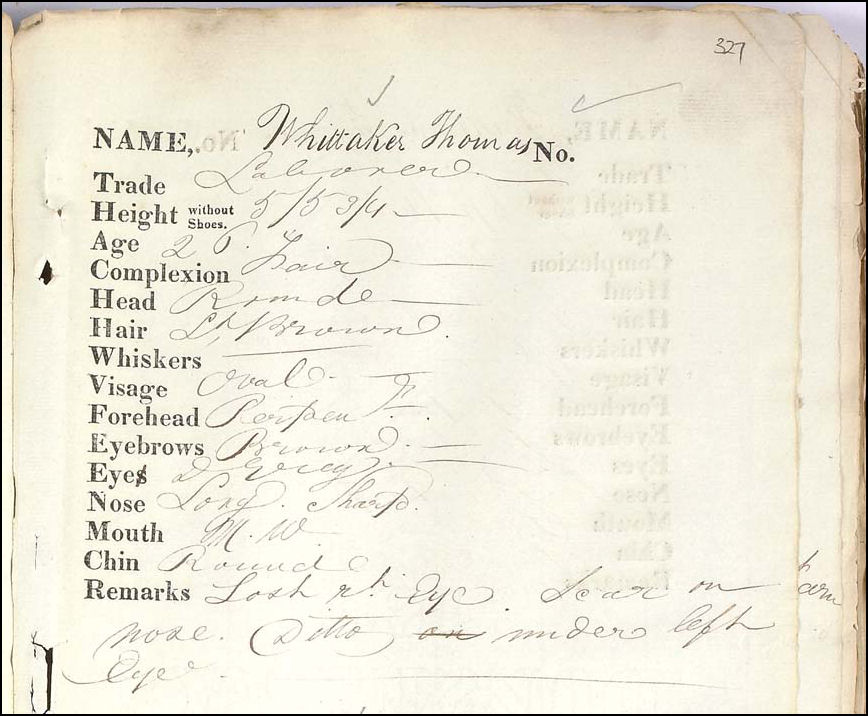 327
NAME, Whittaker Thomas No.
Trade Laborer
Height without Shoes. 5/5 3/4
Age 2
Complexion Fair
Head Round
Hair Lt Brown
Whiskers
Visage Oval
Forehead Perpen
Eyebrows Brown
Eyes D Grey
Nose Long. Sharp.
Mouth M. W.
Chin Round
Remarks Lost rt. Eye. Scar on
nose. Ditto on under left
Eye